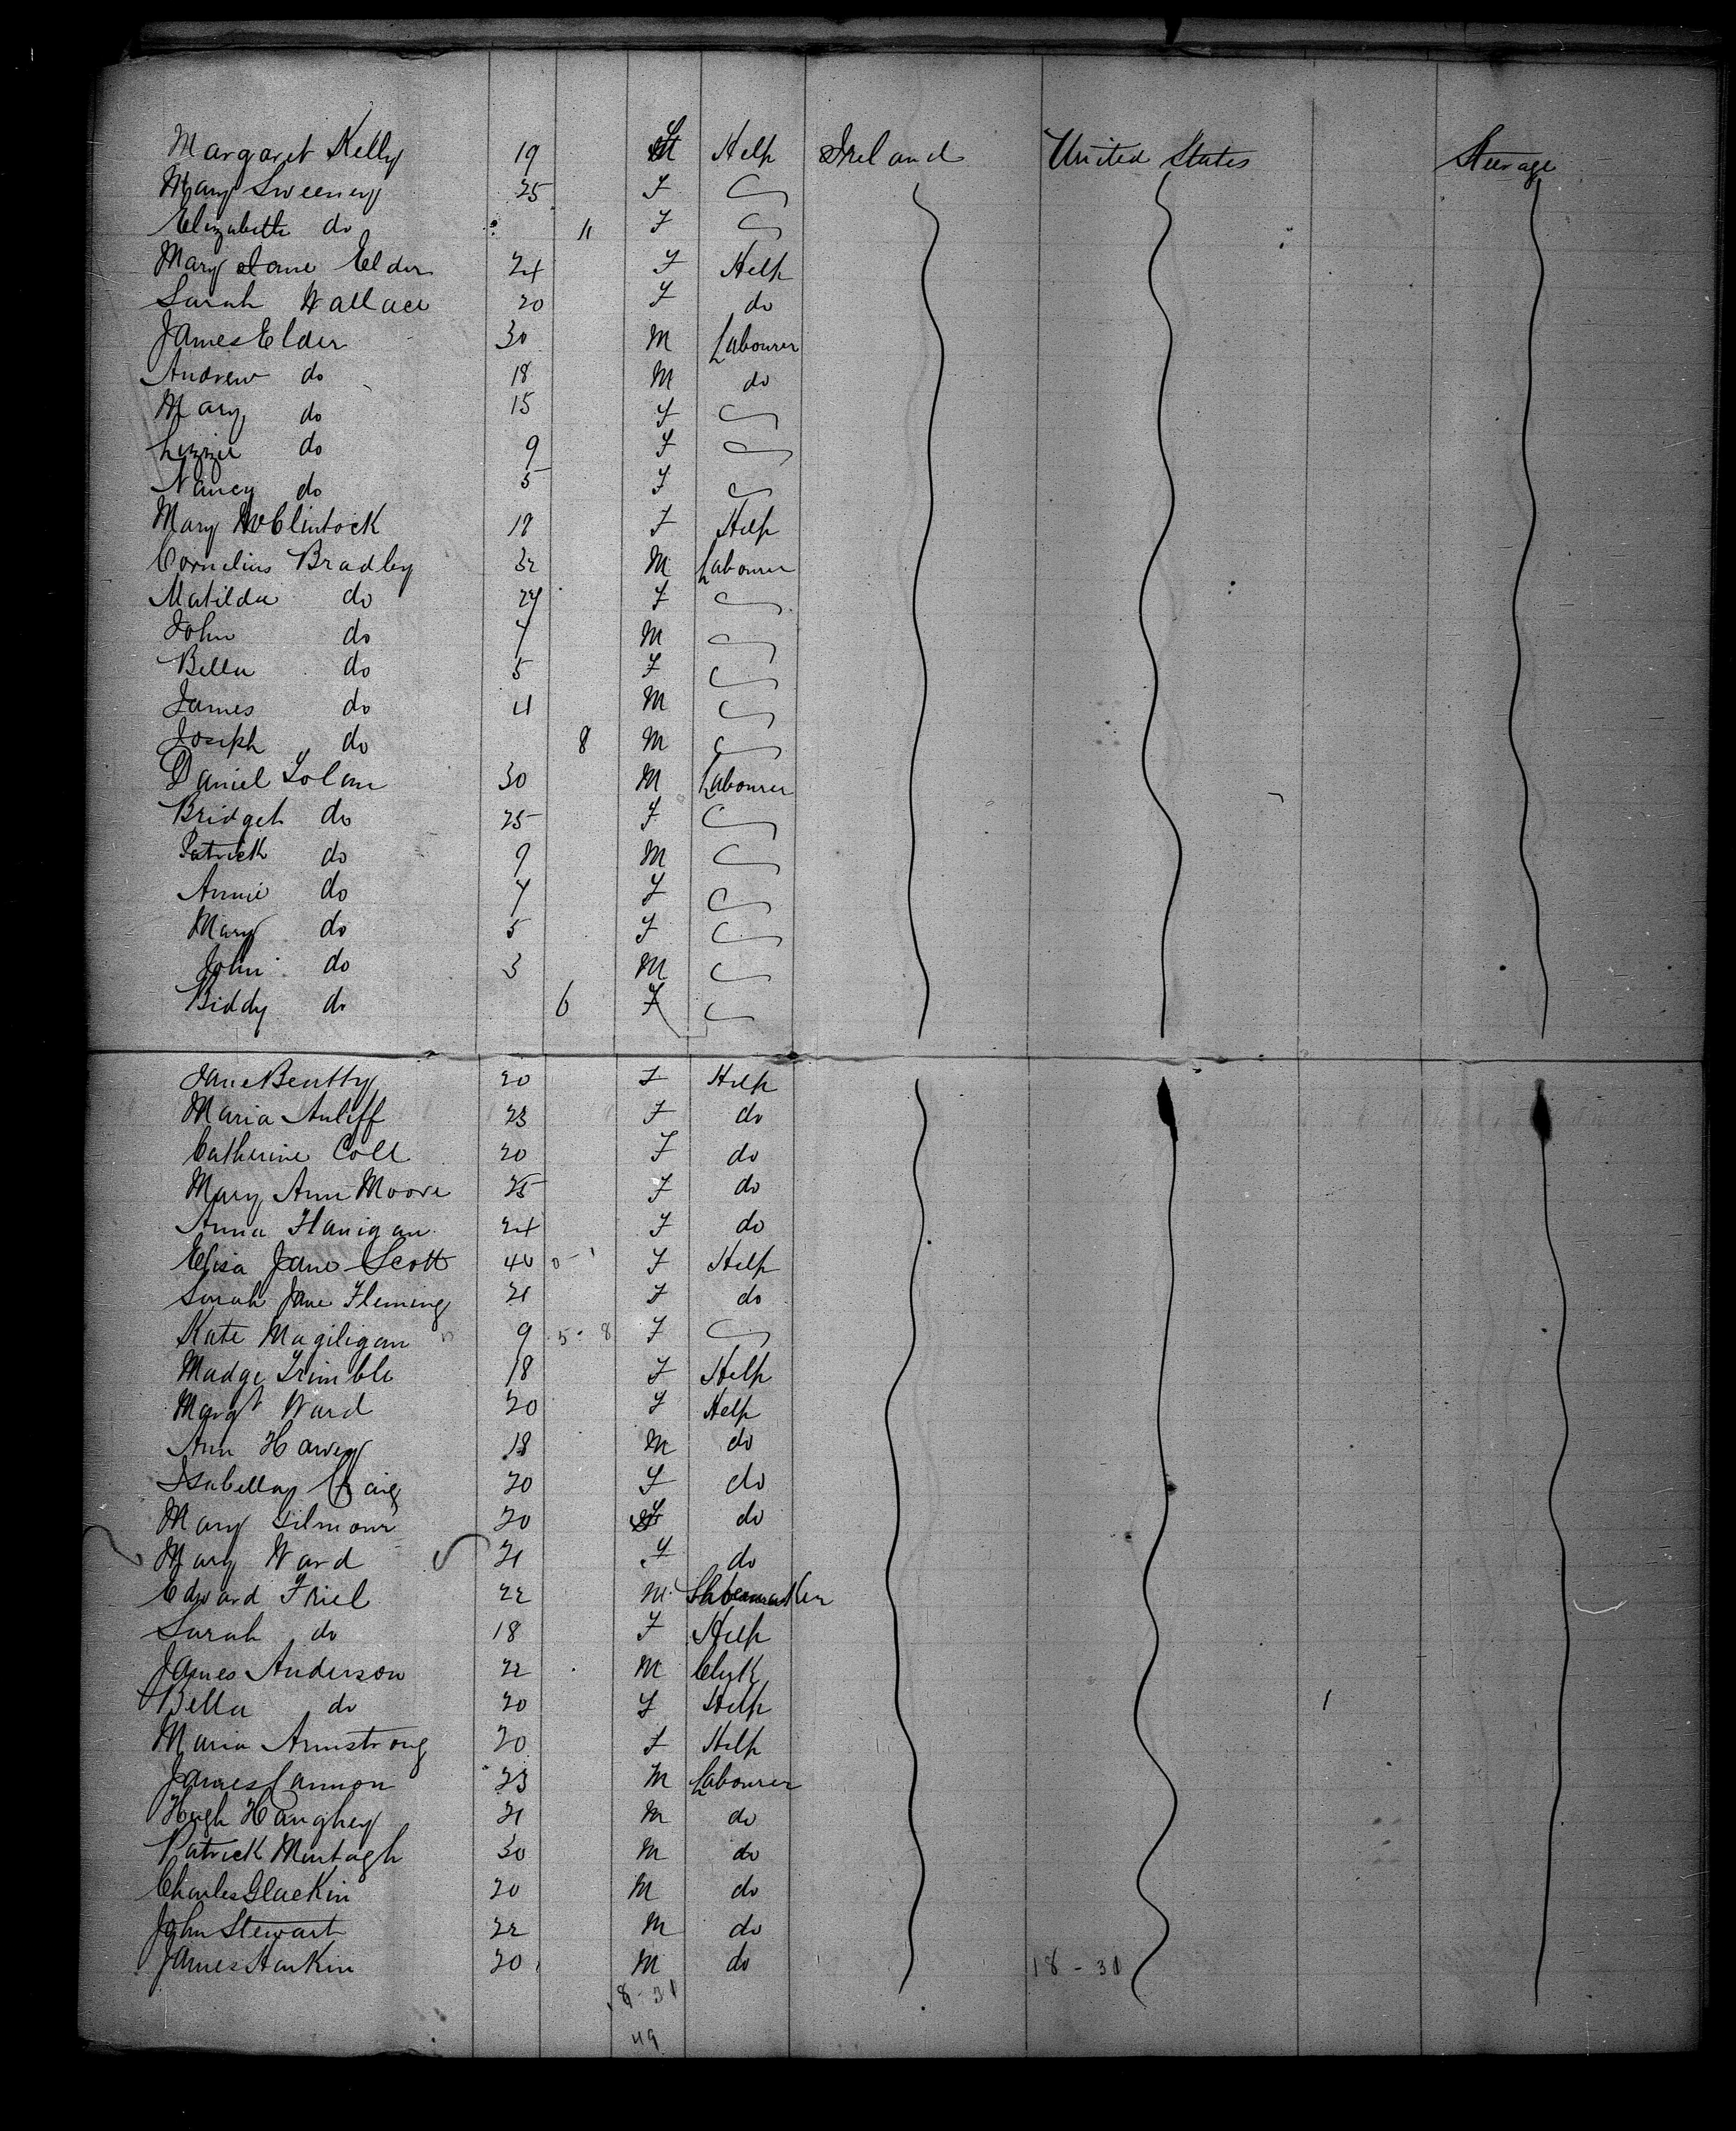 Margaret Kelly 19 F Help Ireland United States Steerage
Mary Sweeney 25 F
Elizabeth do 11 F
Mary Jane Elder 24 F Help
Sarah Wallace 20 F do
James Elder 30 M Labourer
Andrew do 18 M do
Mary do 15 F
Lizzie do 9 F
Nancy do 5 F
Mary McClintock 18 F Help
Cornelius Bradley 32 M Labourer
Matilda do 24 F
John do 7 M
Bella do 5 F
James do 4 M
Joseph do 8 M
Daniel Tolan 30 M Labourer
Bridget do 25 F
Patrick do 9 M
Annie do 7 F
Mary do 5 F
John do 3 M
Biddy do 6 F
Jane Beatty 20 F Help
Maria Auliff 23 F do
Catherine Coll 20 F do
Mary Ann Moore 25 F do
Anna Flanigan 24 F do
Elisa Jane Scott 40 F Help
Sarah Jane Fleming 21 F do
Kate Magiligan 9 5 8 F
Madge Trimble 18 F Help
Margt Ward 20 F Help
Ann Harvey 18 M do
Isabella Craig 20 F do
Mary Gilmour 20 F do
Mary Ward 21 F do
Edward Friel 22 M Shoemaker
Sarah do 18 F Help
James Anderson 22 M Clerk
Bella do 20 F Help
Maria Armstrong 20 F Help
James Cannon 23 M Labourer
Hugh Haughey 21 M do
Patrick Murtagh 30 M do
Charles Glackin 20 M do
John Stewart 22 M do
James Harkin 20 M do 18-31
18-31
49